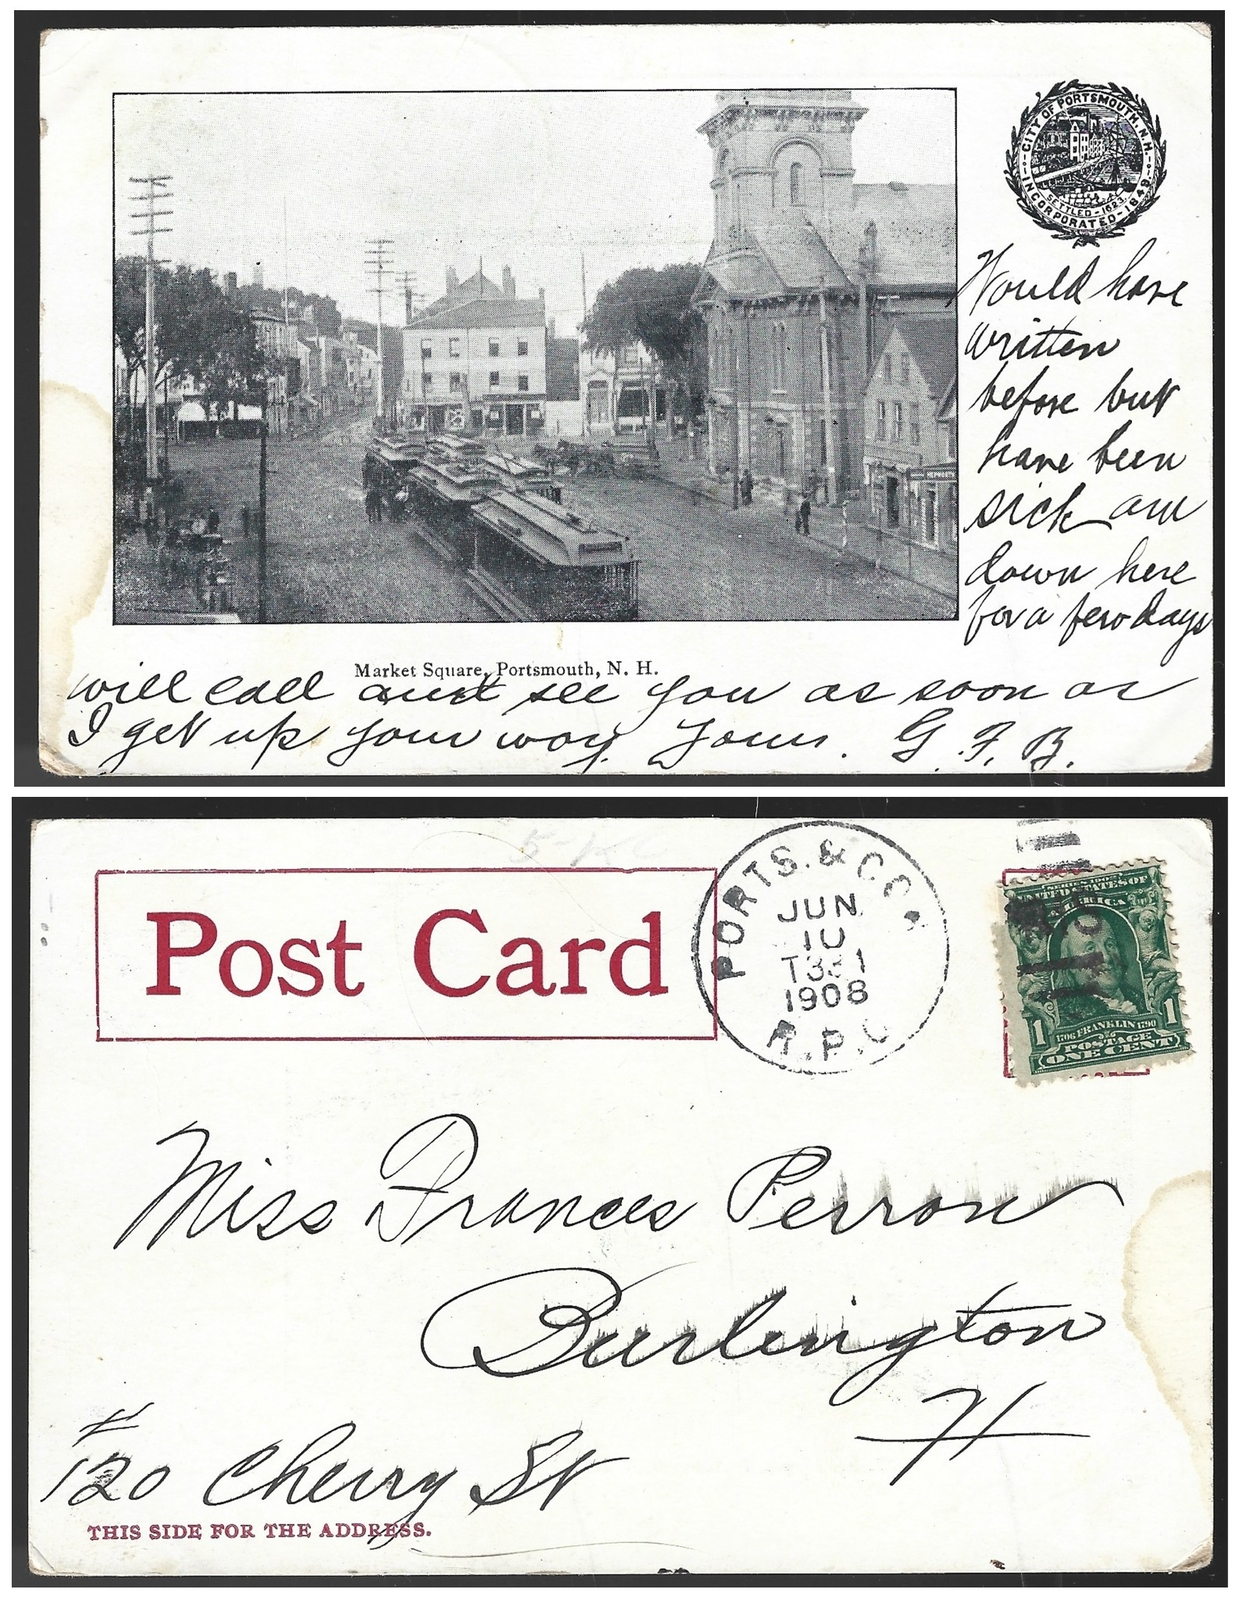 CITY OF PORTSMOUTH, N.H.
SETTLED - 1623
INCORPORATED - 1849
HEPWORTH
Would have
written
before but
have been
sick am
down here
for a few days
Market Square, Portsmouth, N. H.
will call and see you as soon as
I get up your way. Yours. G. F. B.
Post Card
PORTS. & CON
JUN
10
T331
1908
R.P.O
SERIES 1902
UNITED STATES OF
AMERICA
1 1706 FRANKLIN 1790 1
POSTAGE
ONE CENT
Miss Frances Perron
Burlington
Vt
#
120 Cherry St
THIS SIDE FOR THE ADDRESS.